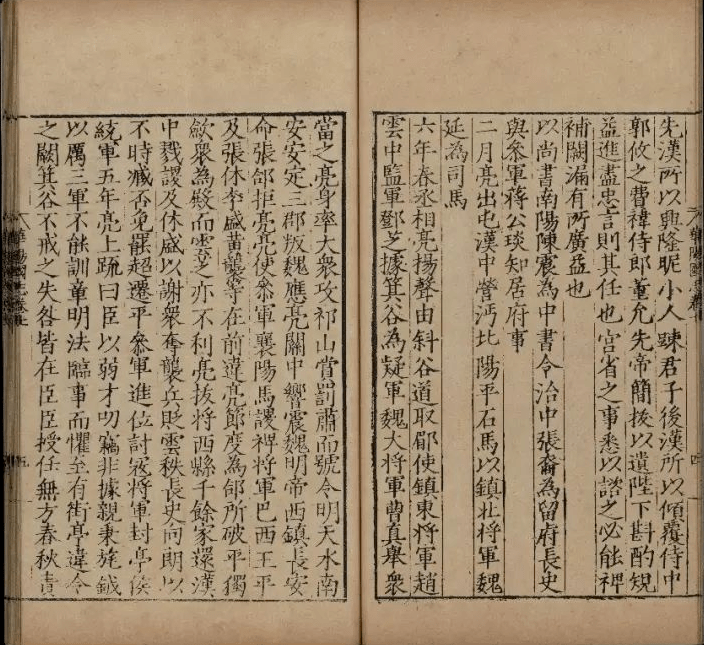 先漢所以興隆昵小人踈君子後漢所以傾覆侍中
郭攸之費禕侍郎董允先帝簡拔以遺陛下斟酌規
益進盡忠言則其任也宮省之事悉以諮之必能裨
補闕漏有所廣益也
以尚書南陽陳震為中書令治中張裔為留府長史
與叅軍蔣公琰知居府事
二月亮出屯漢中營沔北陽平石馬以鎮北將軍魏
延為司馬
六年春丞相亮揚聲由斜谷道取郿使鎮東將軍趙
雲中監軍鄧芝據箕谷為疑軍魏大將軍曹真舉衆
當之亮身率大衆攻祁山賞罰肅而號令明天水南
安安定三郡叛魏應亮關中響震魏明帝西鎮長安
命張郃拒亮亮使叅軍襄陽馬謖裨將軍巴西王平
及張休李盛黃襲等在前違亮節度為郃所破平獨
歛衆為殿而雲芝亦不利亮拔將西縣千餘家還漢
中戮謖及休盛以謝衆奪襲兵貶雲秩長史向朗以
不時臧否免罷超遷平叅軍進位討寇將軍封亭侯
統軍五年亮上疏曰臣以弱才叨竊非據親秉旄鉞
以厲三軍不能訓章明法臨事而懼至有街亭違令
之闕箕谷不戒之失咎皆在臣臣授任無方春秋責